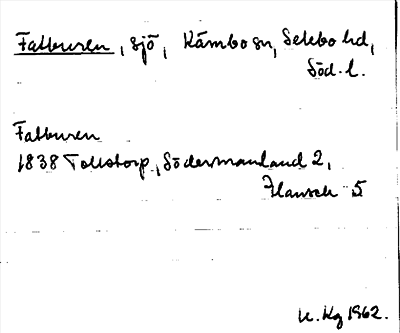 Fatburen, sjö, Kärnbo sn, Selebo hd,
Söd. l.
Fatburen
1838 Tollstorp, Södermanland 2,
Hansch 5
K. Kg 1962.